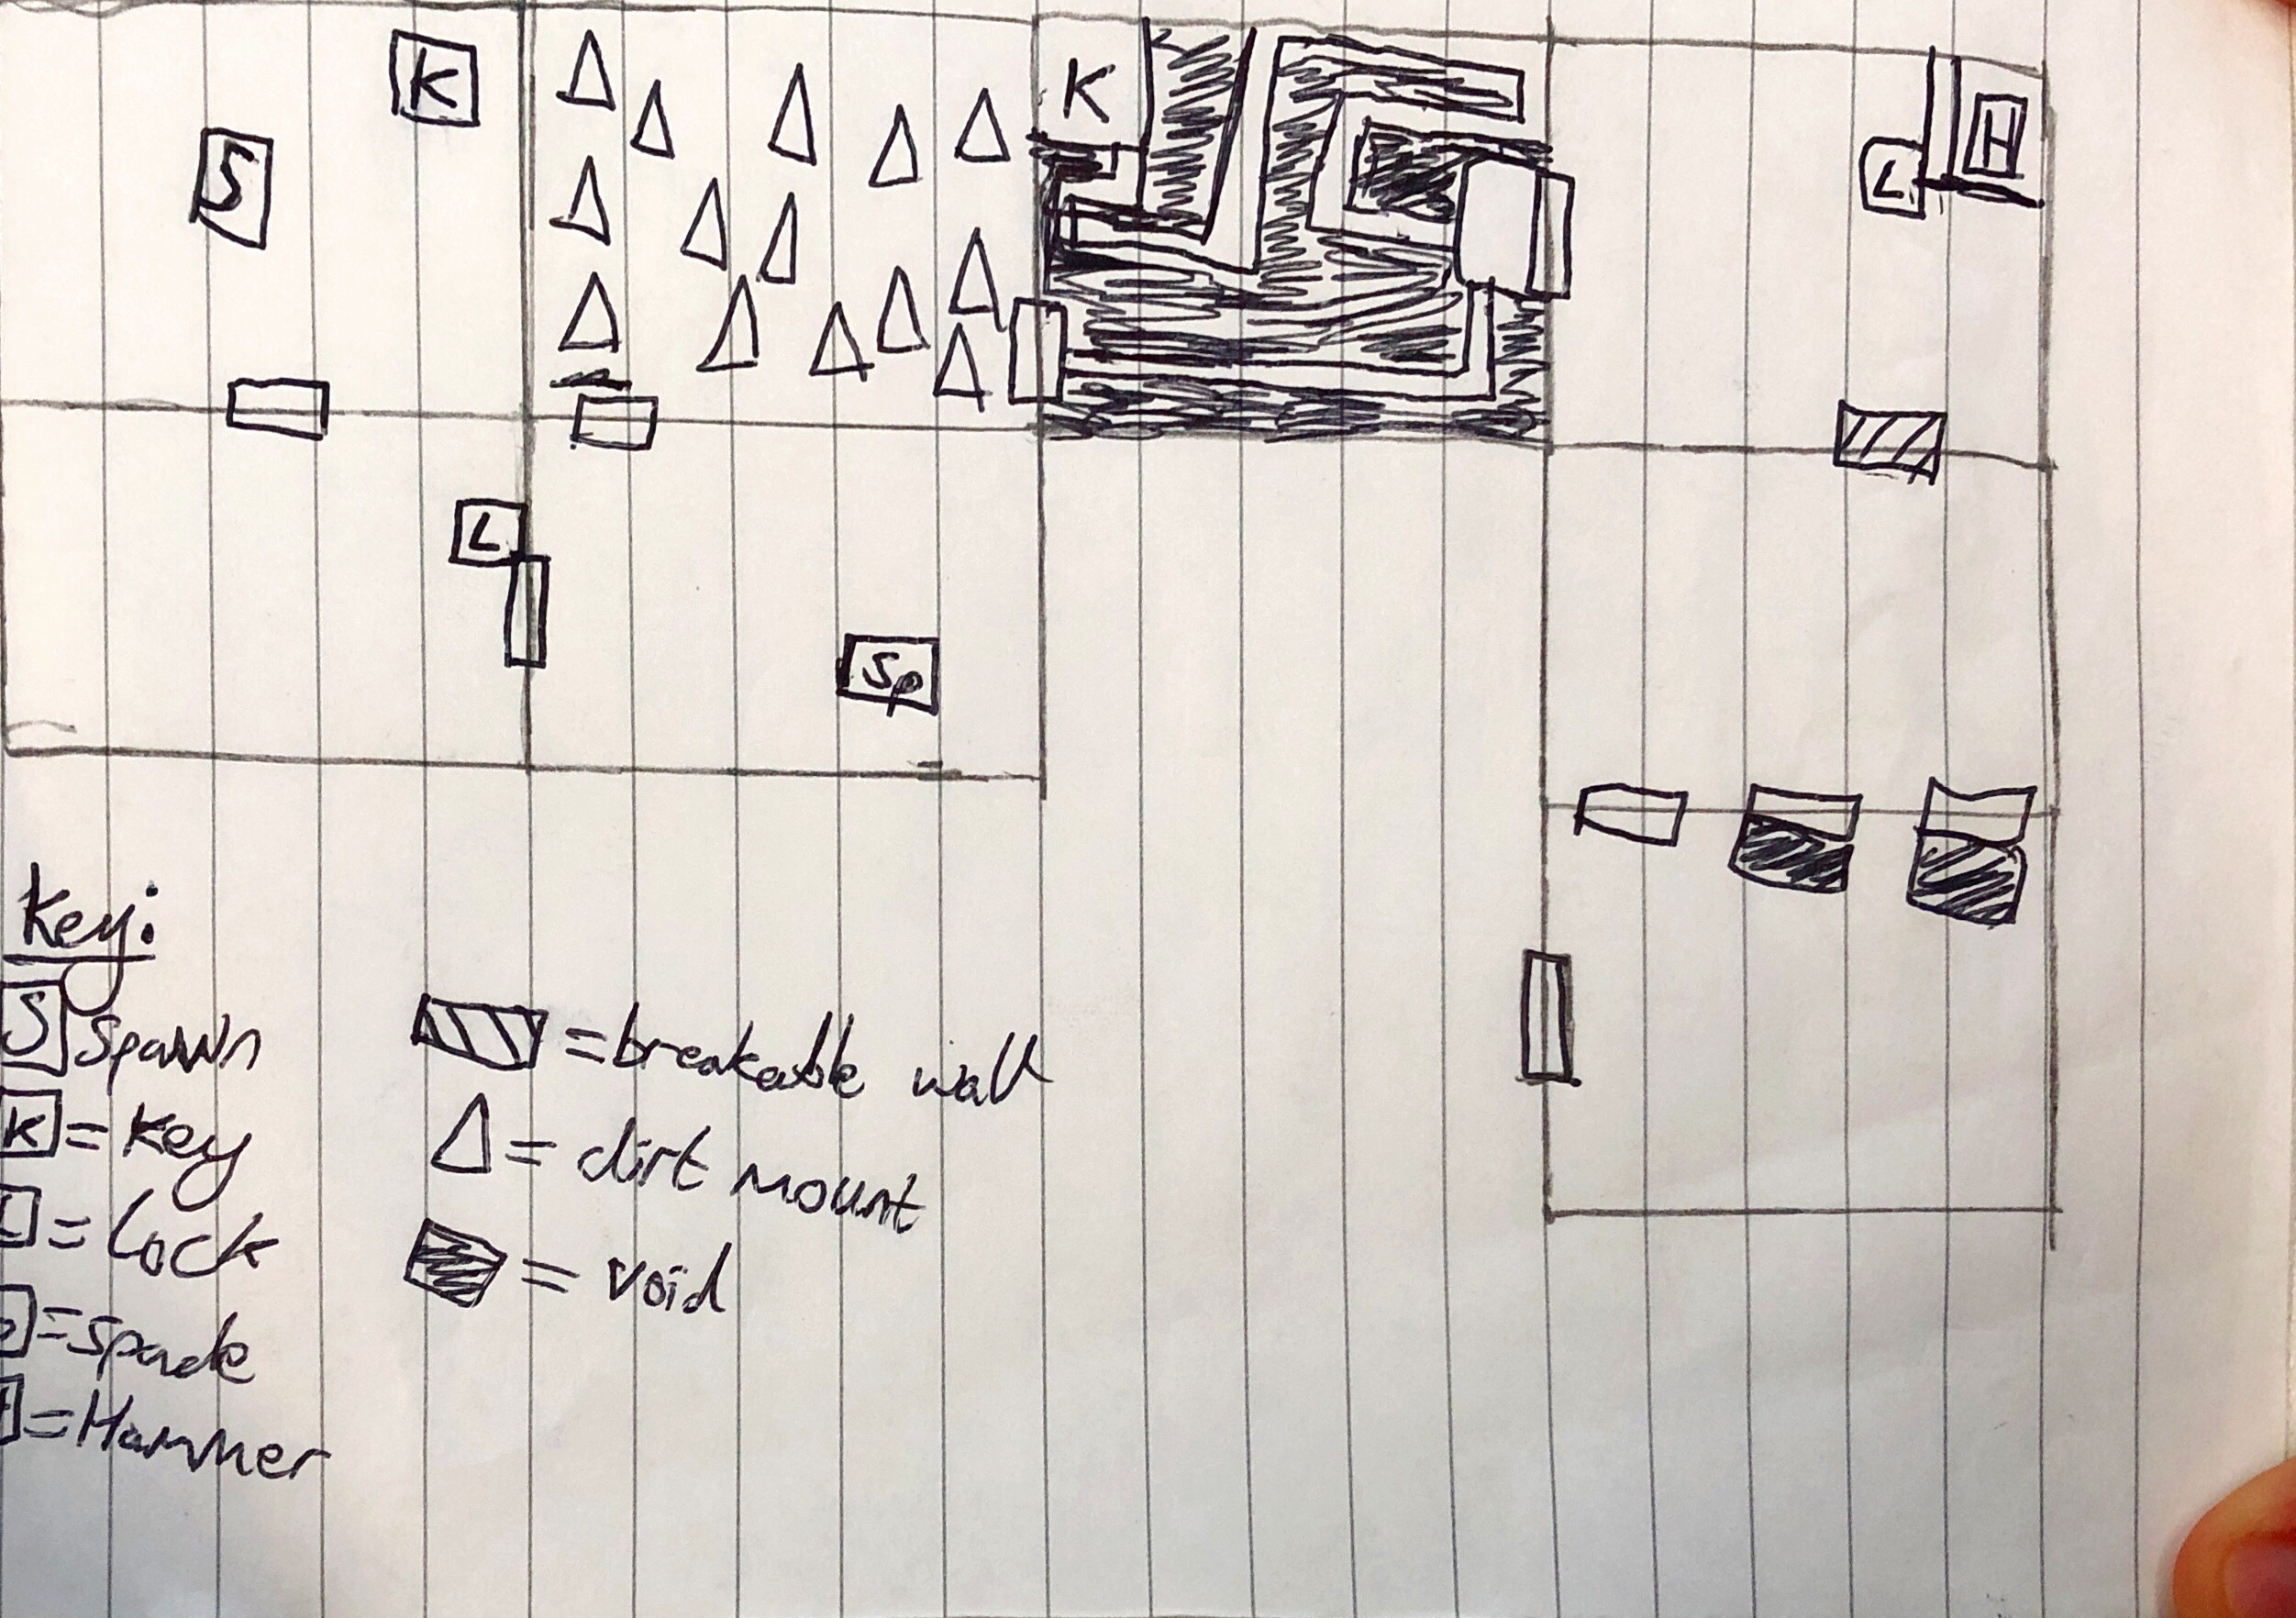 K
K
S
L
H
L
Sp
Key:
S Spawn
K = Key
L = Lock
= Spade
= Hammer
= breakable wall
= dirt mount
= void